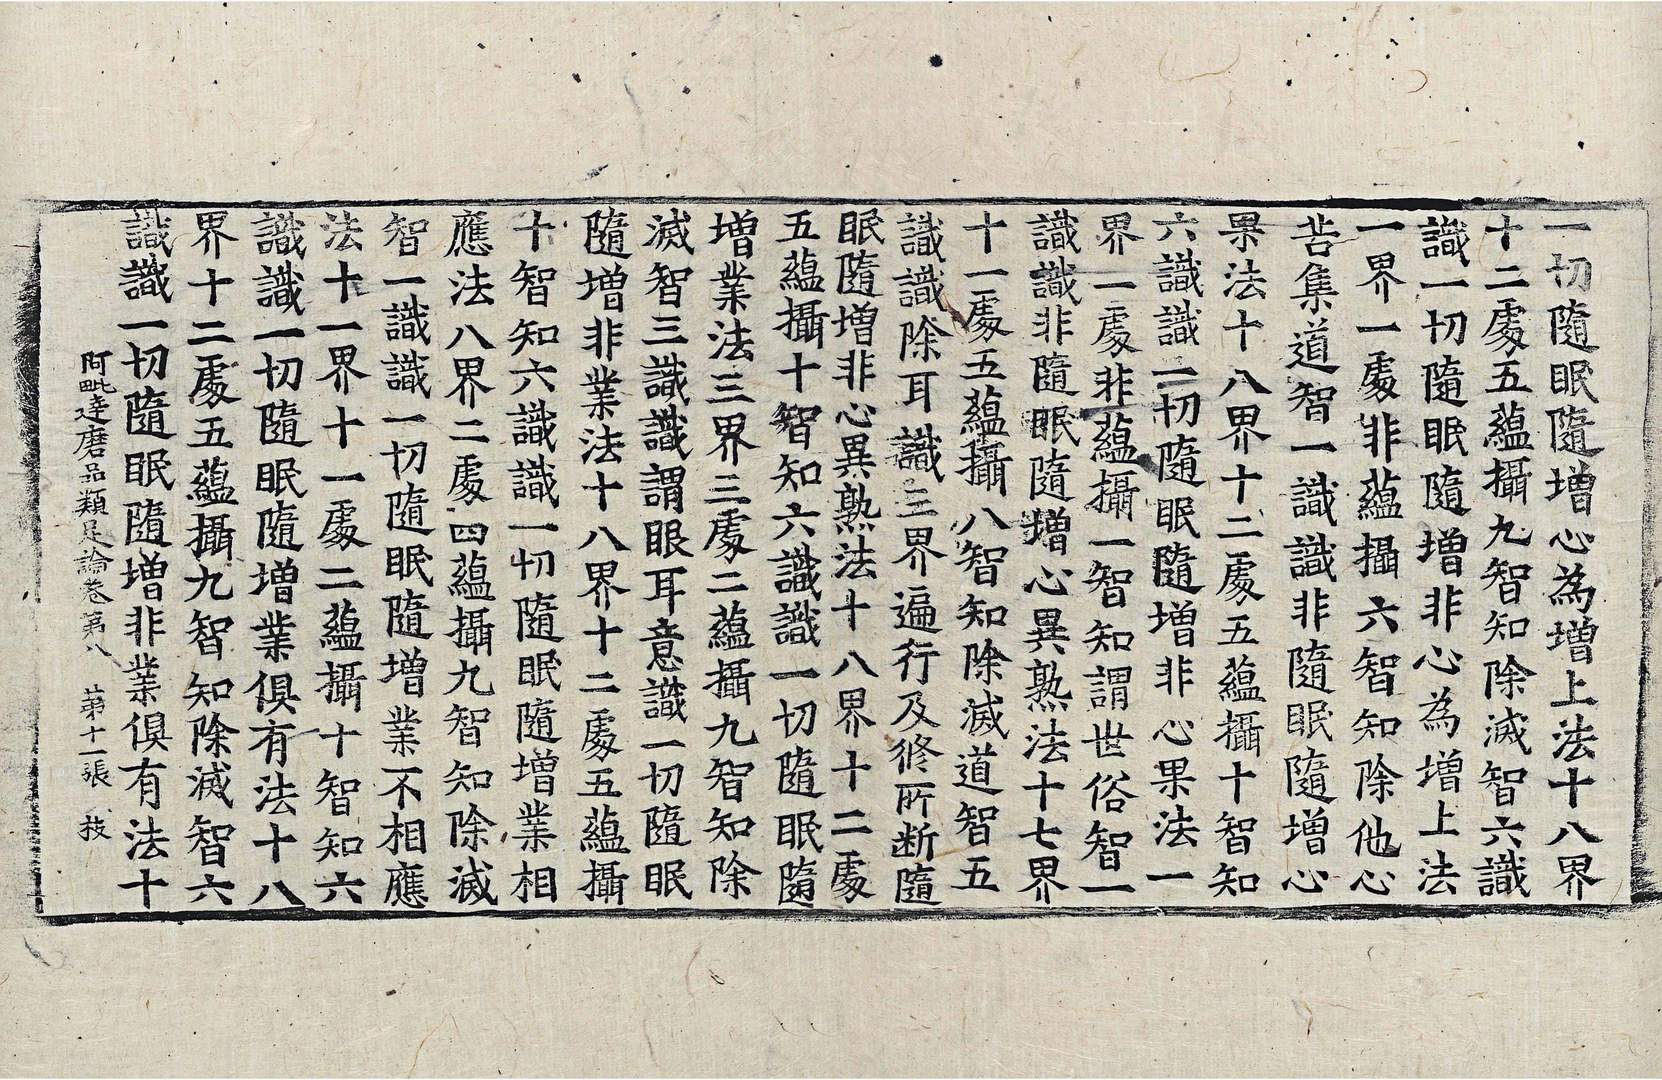 一切隨眠隨增心為增上法十八界
十二處五蘊攝九智知除滅智六識
識一切隨眠隨增非心為增上法
一界一處非蘊攝六智知除他心
苦集道智一識識非隨眠隨增心
果法十八界十二處五蘊攝十智知
六識識一切隨眠隨增非心果法一
界一處非蘊攝一智知謂世俗智一
識識非隨眠隨增心異熟法十七界
十一處五蘊攝八智知除滅道智五
識識除耳識三界遍行及修所断隨
眠隨增非心異熟法十八界十二處
五蘊攝十智知六識識一切隨眠隨
增業法三界三處二蘊攝九智知除
滅智三識識謂眼耳意識一切隨眠
隨增非業法十八界十二處五蘊攝
十智知六識識一切隨眠隨增業相
應法八界二處四蘊攝九智知除滅
智一識識一切隨眠隨增業不相應
法十一界十一處二蘊攝十智知六
識識一切隨眠隨增業俱有法十八
界十二處五蘊攝九智知除滅智六
識識一切隨眠隨增非業俱有法十
阿毗達磨品類足論卷第八 第十一張 技